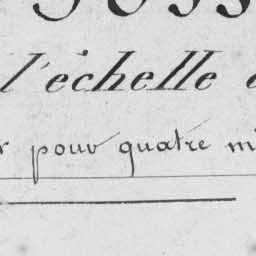 l'échelle
pour quatre